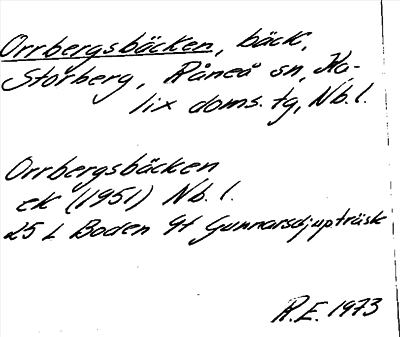 Orrbergsbäcken, bäck,
Storberg, Råneå sn, Ka-
lix doms. tg, Nb. l.
Orrbergsbäcken
ek (1951) Nb. l.
25 L Boden 9f Gunnarsdjupträsk
R.E. 1973